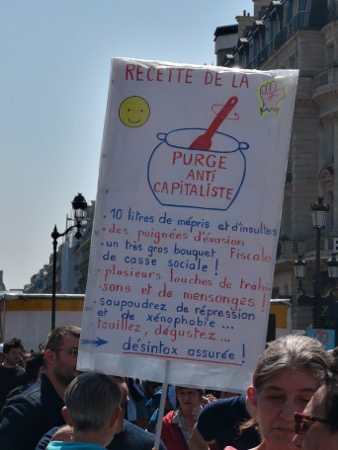 RECETTE DE LA
PURGE
ANTI
CAPITALISTE
• 10 litres de mépris et d'insultes
• des poignées d'évasion
fiscale
• un très gros bouquet
de casse sociale !
• plusieurs louches de trahi-
sons et de mensonges !
• saupoudrez de répression
et de xénophobie ...
touillez, dégustez ...
→ désintox assurée !